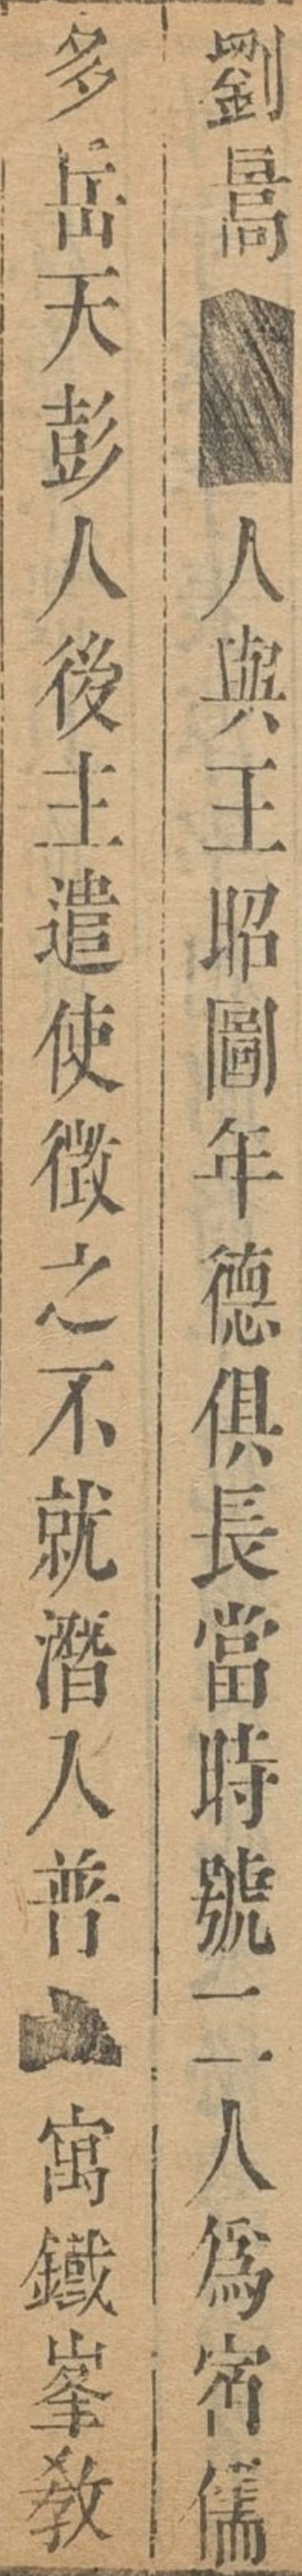 劉暠人與王昭圖年德俱長當時號二人為宿儒
多岳天彭人後主遣使徵之不就潛人普寓鐵峯教